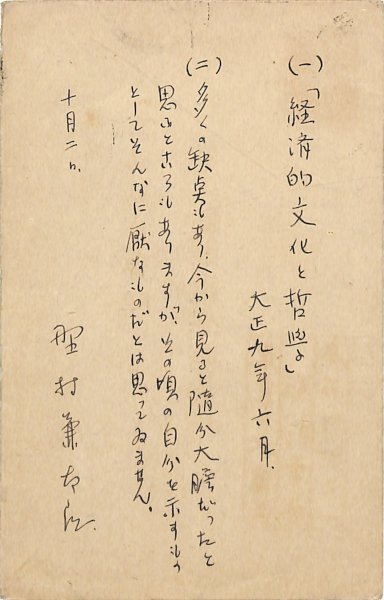 (一)「経済的文化と哲学」
大正九年六月.
(二)多くの缺点もあり、今から見ると随分大膽だったと
思ふところもありますが、その頃の自分を示すもの
としてそんなに厭なものだとは思ってゐません。
十月二日.
野村兼太郎